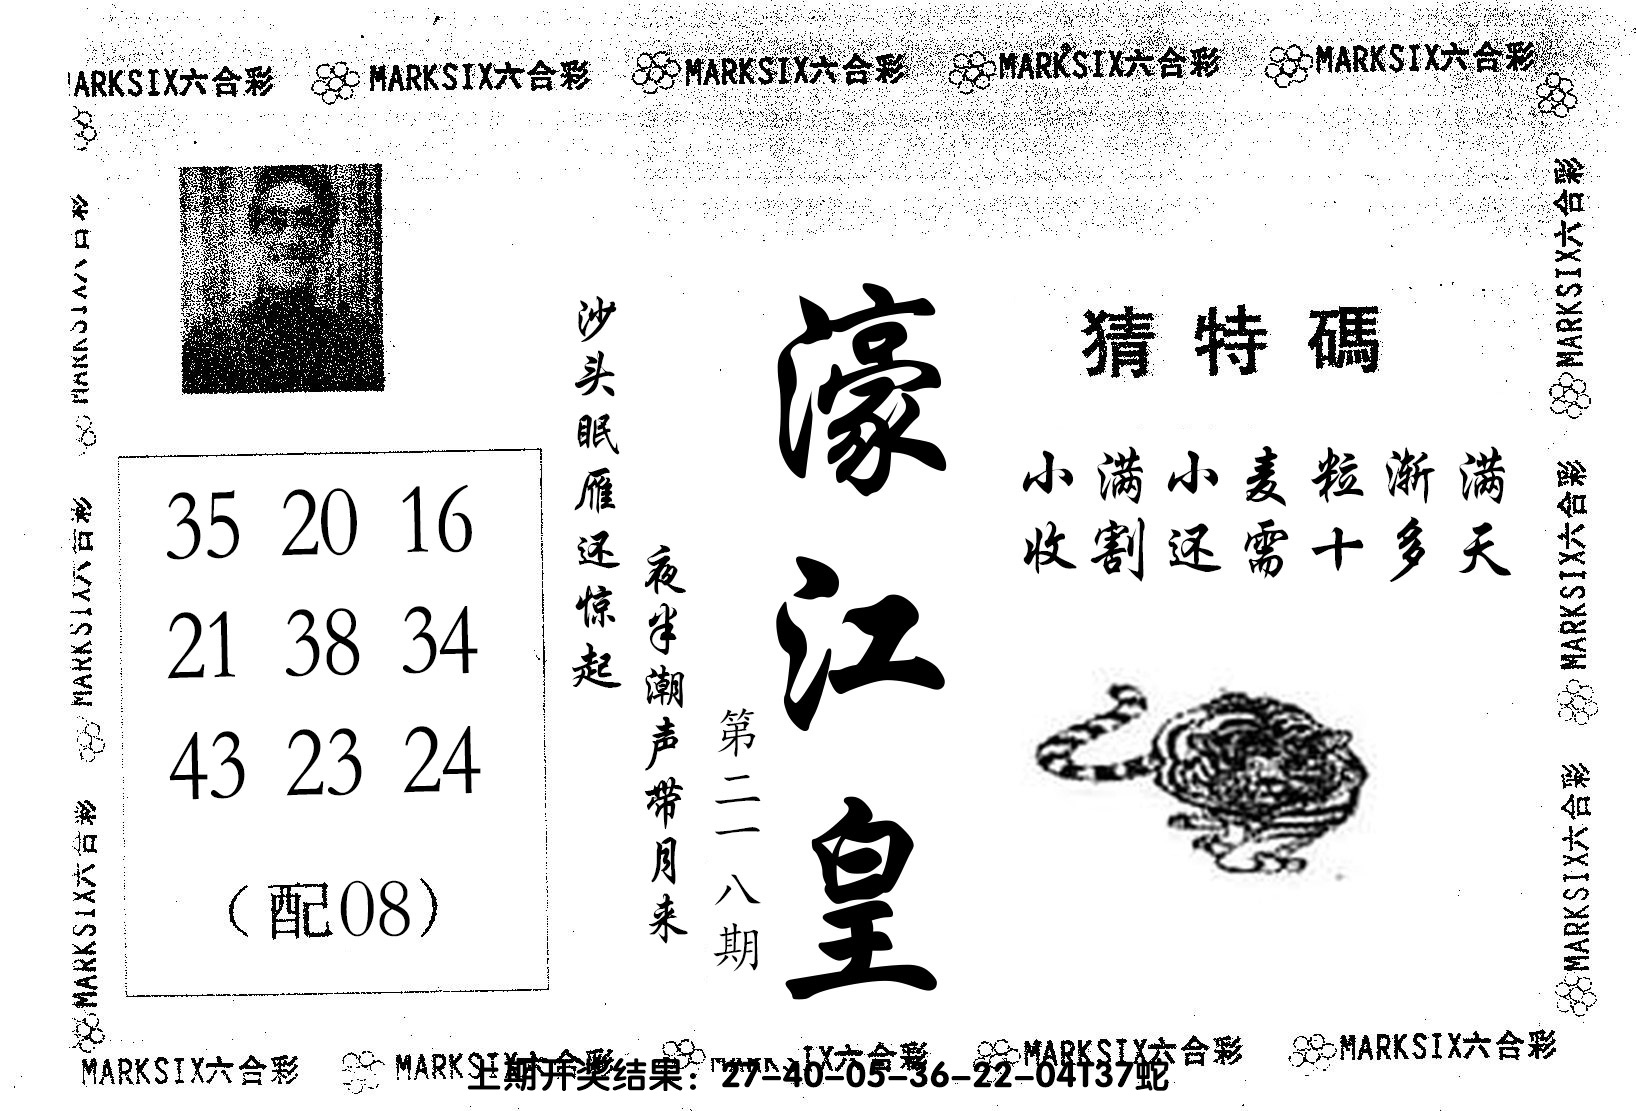 MARKSIX六合彩 MARKSIX六合彩 MARKSIX六合彩 MARKSIX六合彩
ARKSIX六合彩
猜特碼
小满小麦粒渐满
收割还需十多天
濠江皇
第二一八期
夜半潮声带月来
沙头眠雁还惊起
35 20 16
21 38 34
43 23 24
(配08)
MARKSIX六合彩
MARKSIX六合彩
MARKSIX六合彩
MARKSIX六合彩
MARKSIX六合彩
MARKSIX六合彩 MARKSIX六合彩 IX六合彩 MARKSIX六合彩 MARKSIX六合彩
上期开奖结果：27-40-05-36-22-04T37蛇